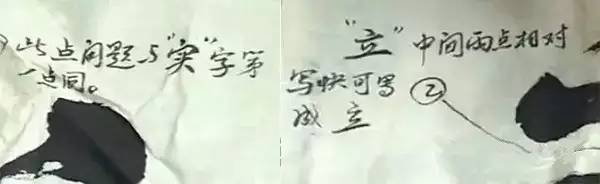 此点问题与"实"字第
一点同。
"立"中间两点相对
写快可写
成立
②